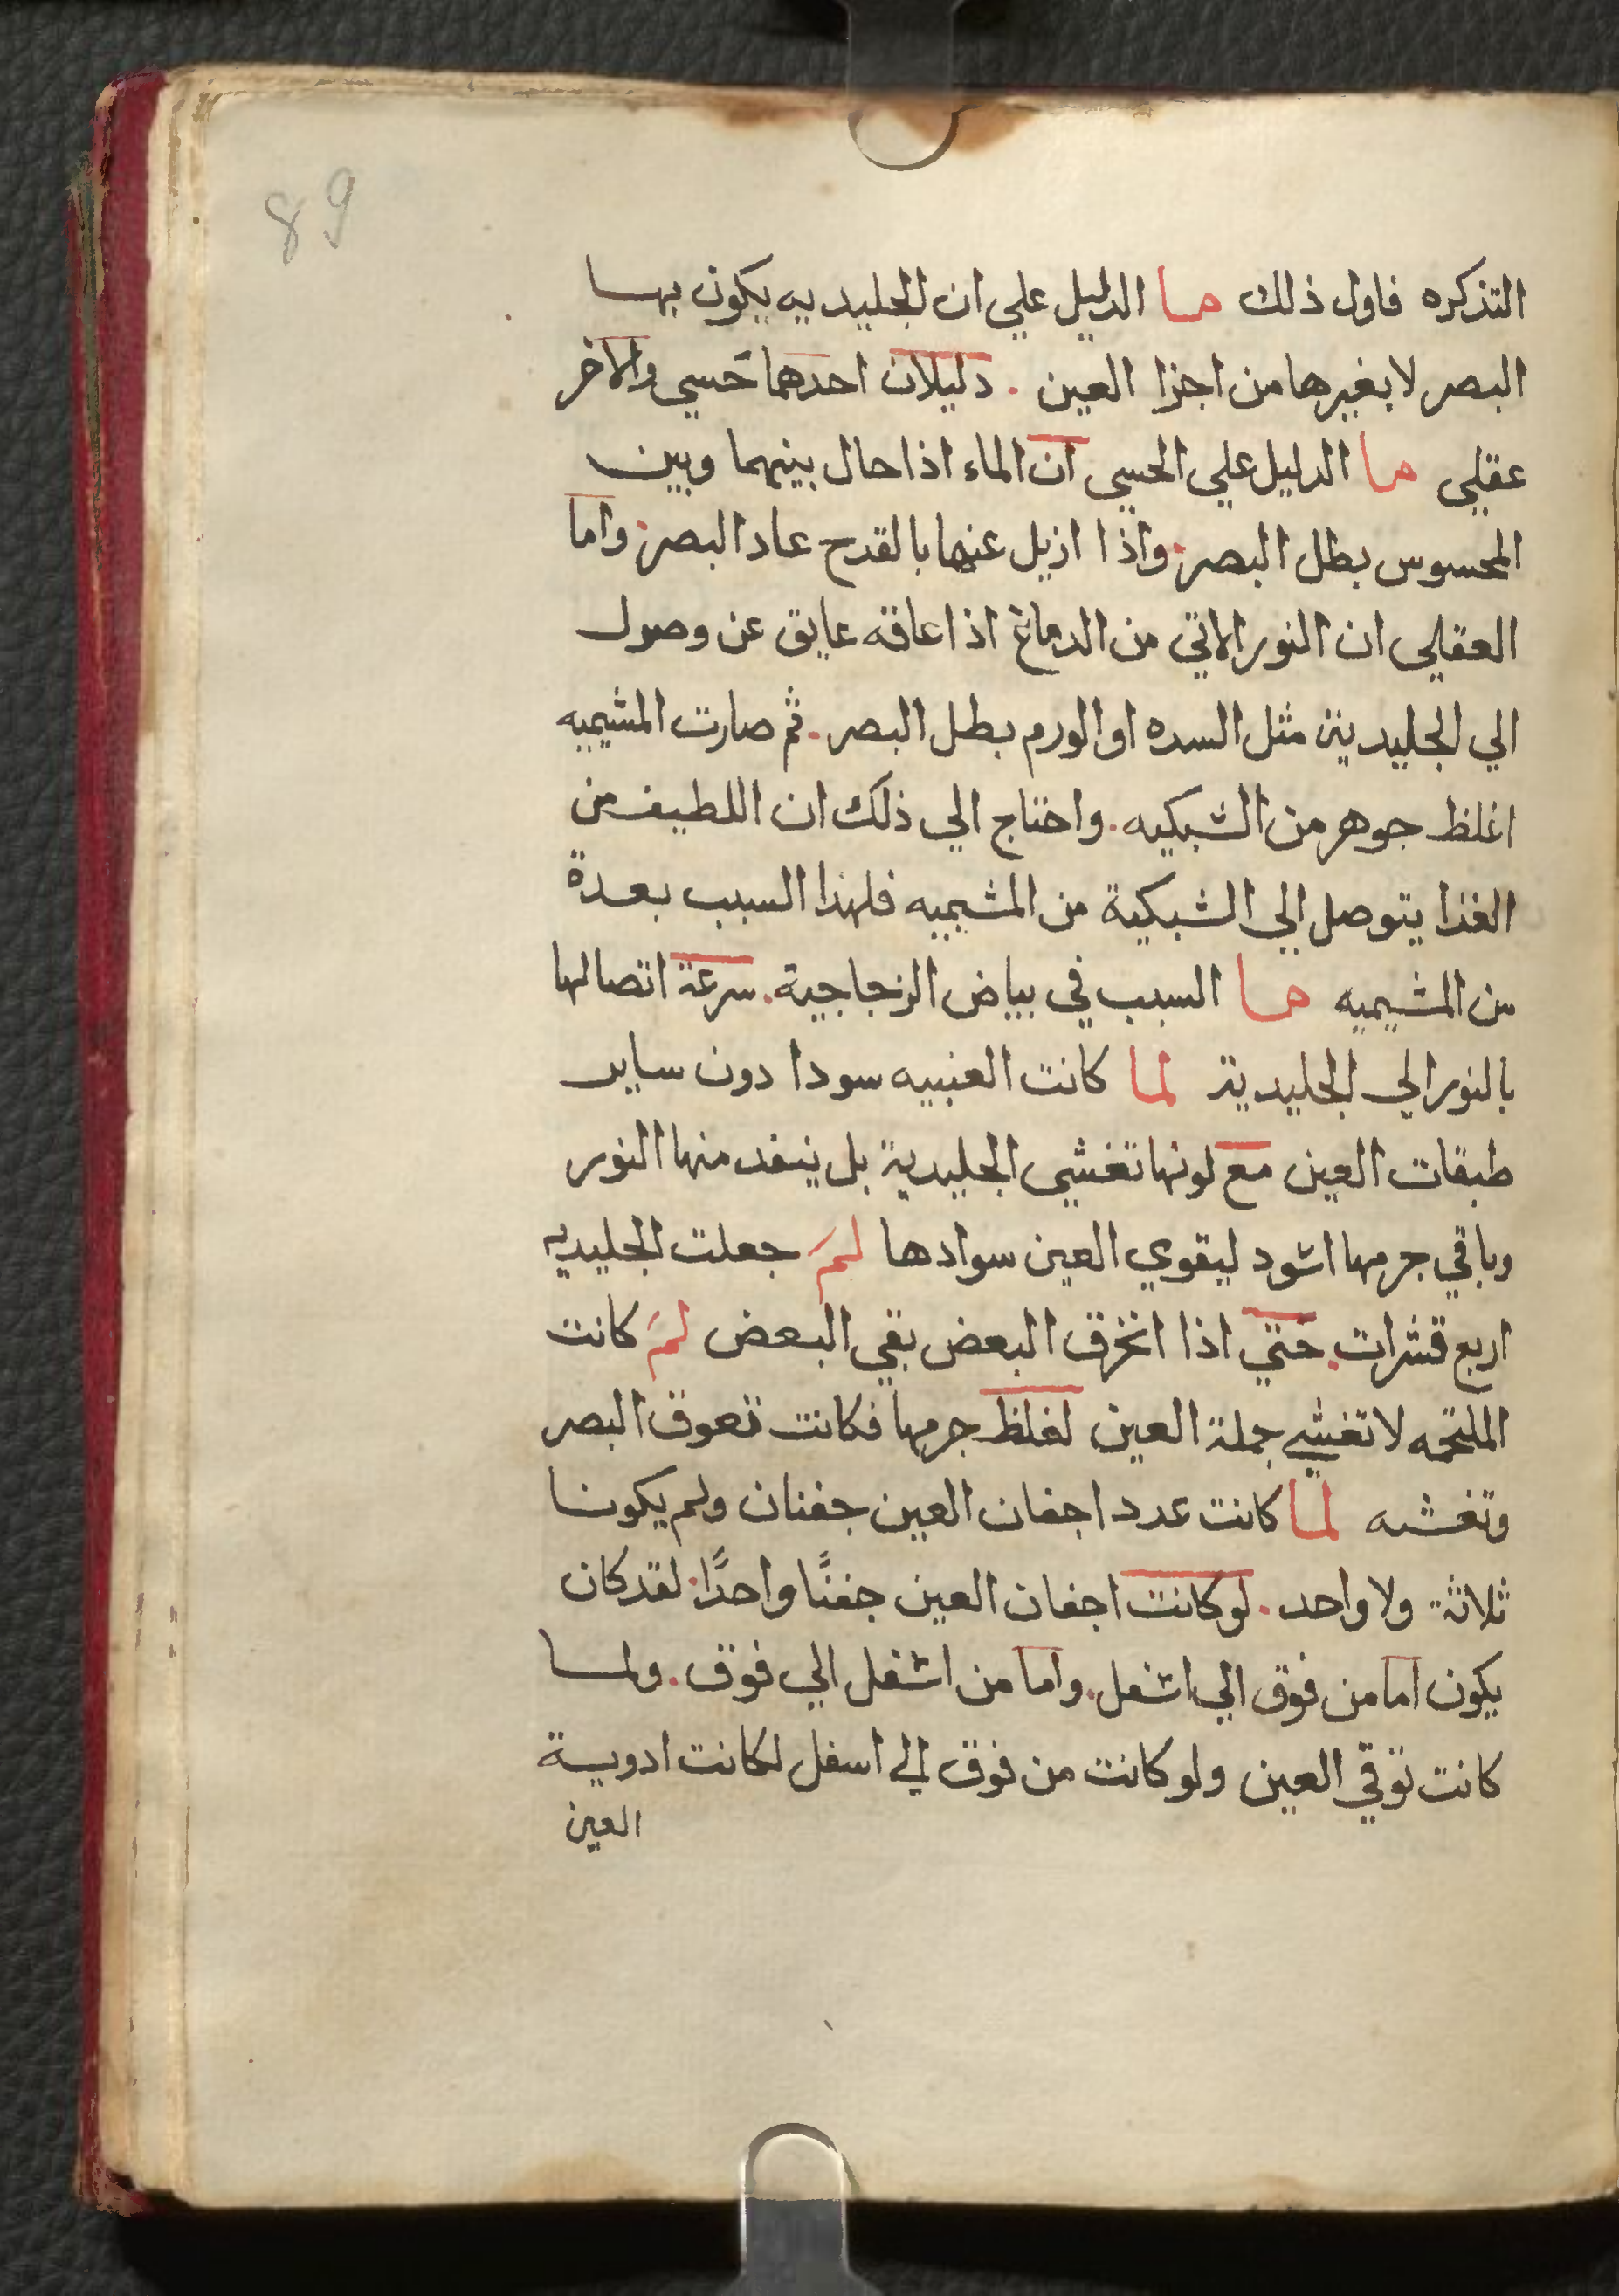 89
التذكره فاول ذلك ما الدليل علي ان الجليديه يكون بها
البصر لا بغيرها من اجزا العين . دليلان احدهما حَسي والاخر
عقلي ما الدليل علي الحسي ان الماء اذا حال بينهما وبين
المحسوس بطل البصر . واذا ازيل عنها بالقدح عاد البصر . واما
العقلي ان النور الاتي من الدماغ اذا عاقه عايق عن وصول
الي الجليدية مثل السده او الورم بطل البصر . ثم صارت المشيميه
اغلظ جوهر من الشبكيه . واحتاج الي ذلك ان اللطيف من
الغذا يتوصل الي الشبكية من المشيميه فلهذا السبب بعدة
من المشيميه ما السبب في بياض الزجاجية . سرعة اتصالها
بالنور الي الجليدية لما كانت العنبيه سودا دون ساير
طبقات العين مع لونها تغشي الجليدية بل ينفد منها النور
وباقي جرمها اسود ليقوي العين سوادها لمَ جعلت الجليديه
اربع قشرات . حَتي اذا انخرق البعض بقي البعض لمَ كانت
الملتحمه لا تغشي جملة العين لغلظ جرمها فكانت تعوق البصر
وتغشه لما كانت عدد اجفان العين جفنان ولم يكونا
ثلاثة ولا واحد . لو كانت اجفان العين جفنًا واحدًا . لقد كان
يكون اما من فوق الي اسفل . واما من اسفل الي فوق . ولما
كانت توقي العين ولو كانت من فوق الي اسفل لكانت ادوية
العين